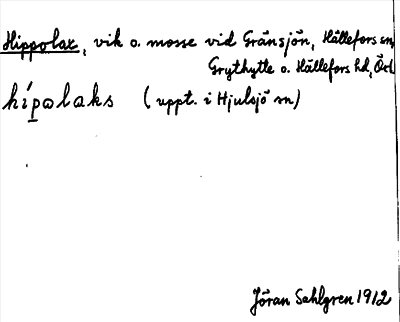 Hippolax, vik o. mosse vid Gränsjön, Hällefors sn,
Grythytte o. Hällefors hd, Örd
hípolaks (uppt. i Hjulsjö sn)
Jöran Sahlgren 1912